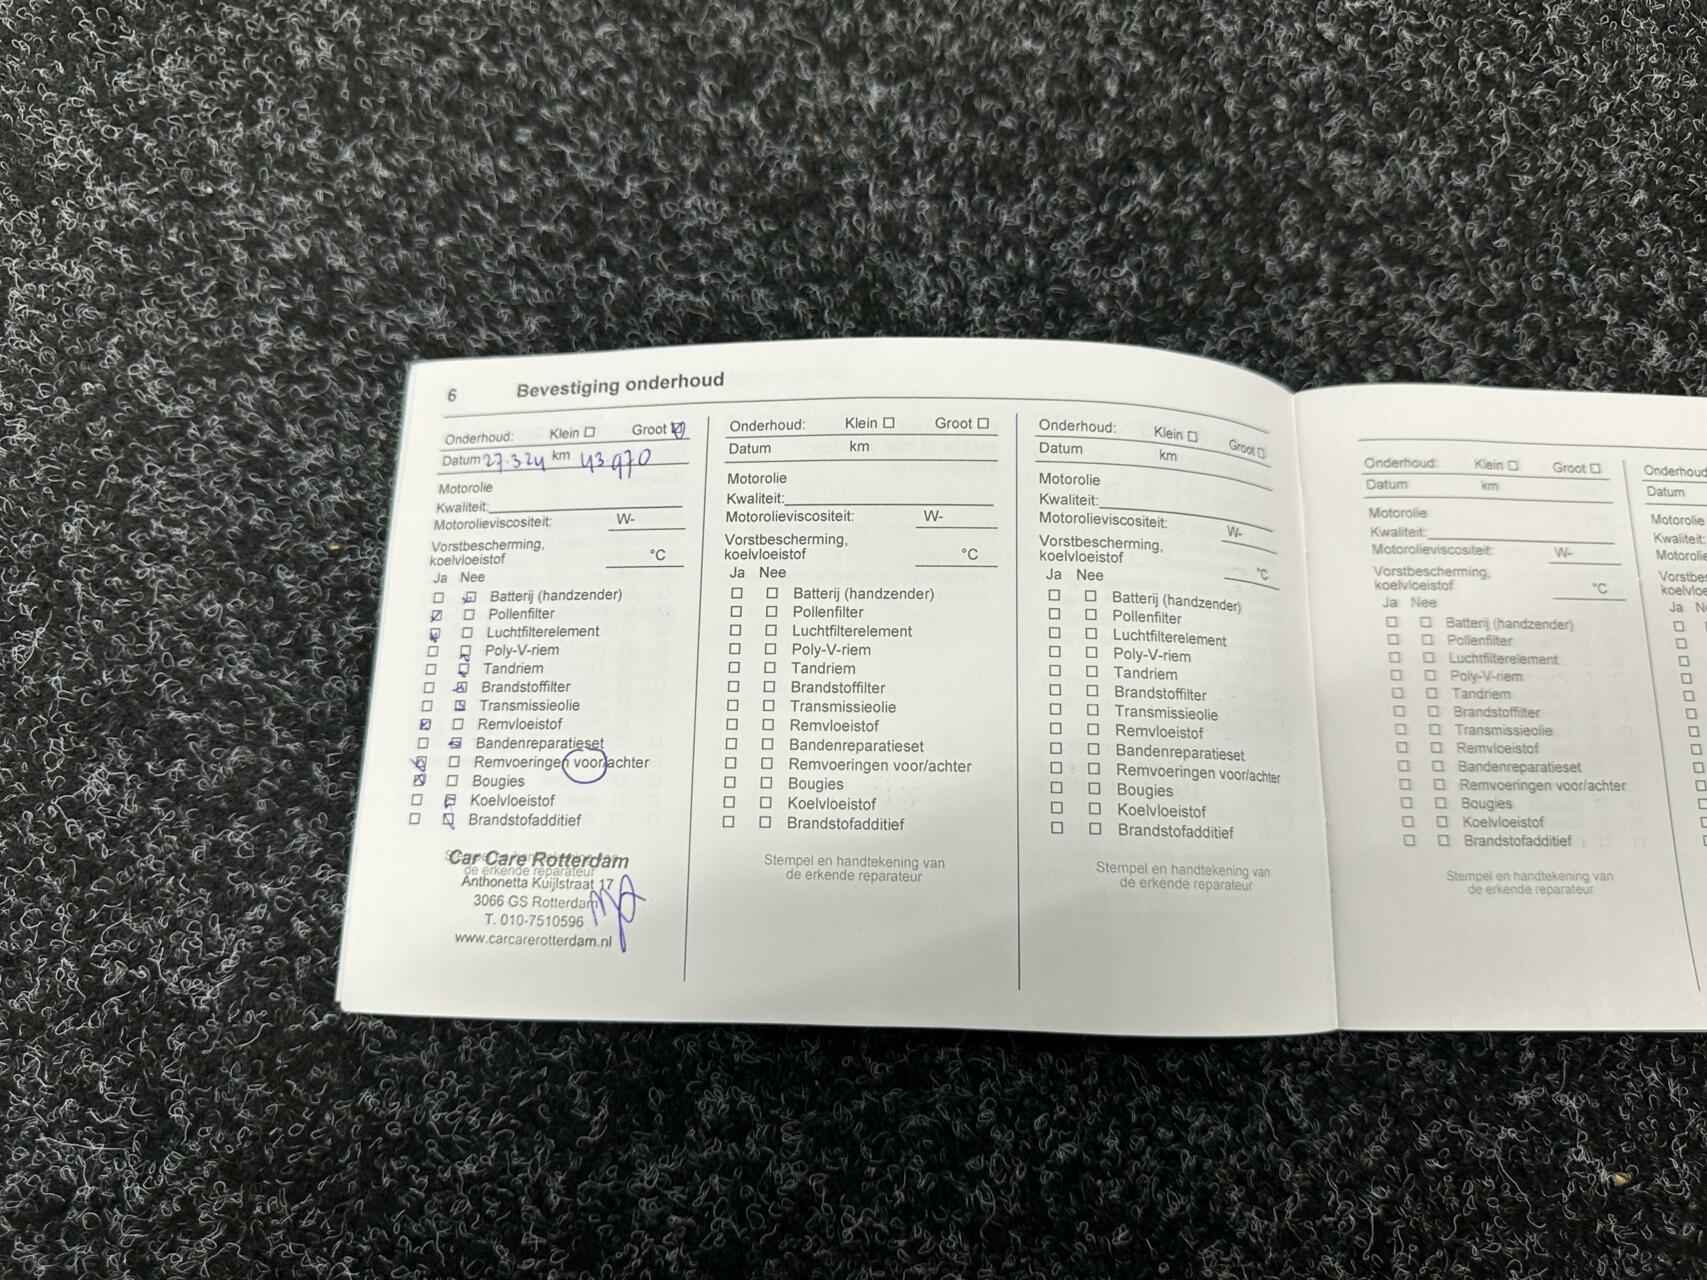 6 Bevestiging onderhoud
Onderhoud: Klein Groot
Datum 27.3.24 km 43970
Motorolie
Kwaliteit:
Motorolieviscositeit: W-
Vorstbescherming,
koelvloeistof °C
Ja Nee
Batterij (handzender)
Pollenfilter
Luchtfilterelement
Poly-V-riem
Tandriem
Brandstoffilter
Transmissieolie
Remvloeistof
Bandenreparatieset
Remvoeringen voor/achter
Bougies
Koelvloeistof
Brandstofadditief
Stempel en handtekening van
de erkende reparateur
Car Care Rotterdam
Anthonetta Kuijlstraat 17
3066 GS Rotterdam
T. 010-7510596
www.carcarerotterdam.nl
Onderhoud: Klein Groot
Datum km
Motorolie
Kwaliteit:
Motorolieviscositeit: W-
Vorstbescherming,
koelvloeistof °C
Ja Nee
Batterij (handzender)
Pollenfilter
Luchtfilterelement
Poly-V-riem
Tandriem
Brandstoffilter
Transmissieolie
Remvloeistof
Bandenreparatieset
Remvoeringen voor/achter
Bougies
Koelvloeistof
Brandstofadditief
Stempel en handtekening van
de erkende reparateur
Onderhoud: Klein Groot
Datum km
Motorolie
Kwaliteit:
Motorolieviscositeit: W-
Vorstbescherming,
koelvloeistof °C
Ja Nee
Batterij (handzender)
Pollenfilter
Luchtfilterelement
Poly-V-riem
Tandriem
Brandstoffilter
Transmissieolie
Remvloeistof
Bandenreparatieset
Remvoeringen voor/achter
Bougies
Koelvloeistof
Brandstofadditief
Stempel en handtekening van
de erkende reparateur
Onderhoud: Klein Groot
Datum km
Motorolie
Kwaliteit:
Motorolieviscositeit: W-
Vorstbescherming,
koelvloeistof °C
Ja Nee
Batterij (handzender)
Pollenfilter
Luchtfilterelement
Poly-V-riem
Tandriem
Brandstoffilter
Transmissieolie
Remvloeistof
Bandenreparatieset
Remvoeringen voor/achter
Bougies
Koelvloeistof
Brandstofadditief
Stempel en handtekening van
de erkende reparateur
Onderhoud
Datum
Motorolie
Kwaliteit:
Motorolie
Vorstbes
koelvloe
Ja N